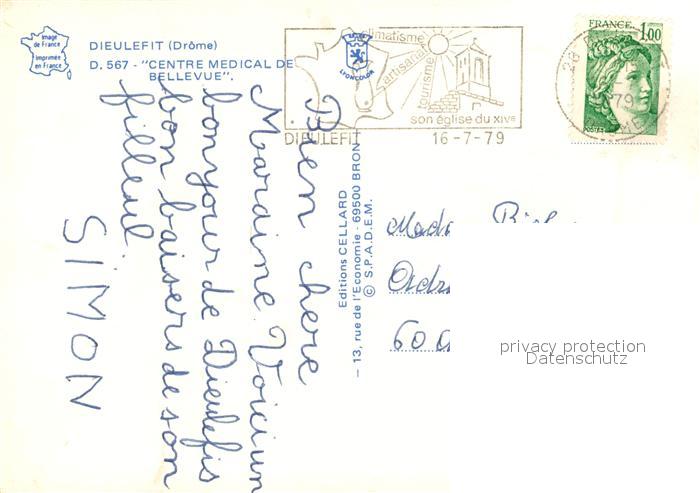 Image
de France
Imprimée
en France
DIEULEFIT (Drôme)
D. 567 - "CENTRE MEDICAL DE
BELLEVUE".
LYONCOLOR
climatisme
artisanat
tourisme
son église du XIVe
DIEULEFIT
16-7-79
FRANCE
1,00
POSTES
79
Bien chere
Mardine Voici un
bonjour de Dieulefis
bon baisers de son
filleul
SiMON
Editions CELLARD
- 13, rue de l'Economie - 69500 BRON
© S.P.A.D.E.M.
600
privacy protection
Datenschutz